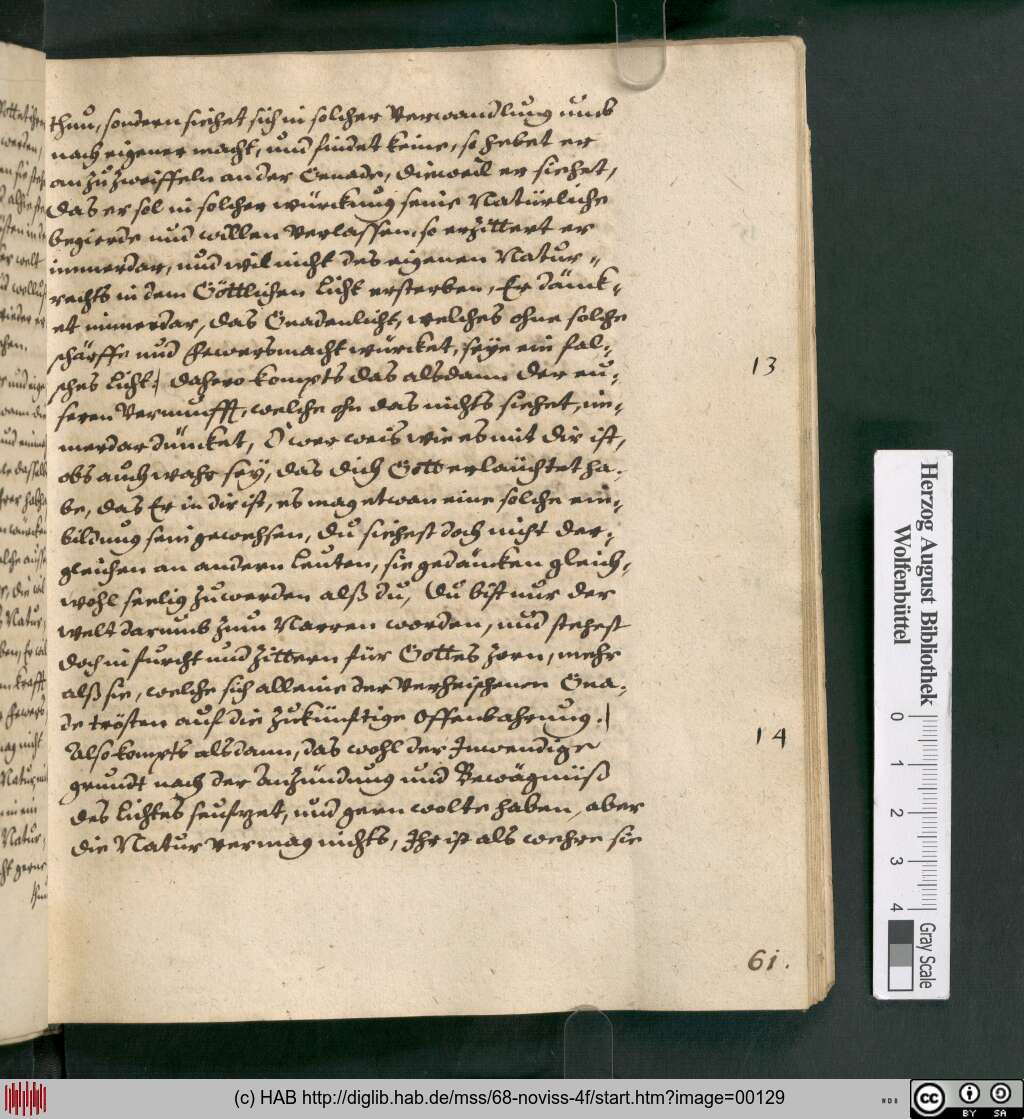 thun, sondern siehet sich in solcher Verwandlung umb
nach eigener macht, und findet keine, so hebet er
an zu zweiffeln an der Genade, dieweil er siehet,
das er sol in solcher würckung seine Natürliche
begierde und willen verlassen, so erzittert er
immerdar, und wil nicht des eigenen Natur-
rechts in dem Göttlichen Licht ersterben, Er dünck-
et immerdar, das Gnadenlicht, welches ohne solche
schärffe und fewersmacht würcket, seye ein fal-
sches Licht. Dahero kompts das alsdann der eu-
seren Vernunfft, welche ohn das nichts siehet, im-
merdar düncket, O wer weis wie es mit dir ist,
obs auch wahr sey, das dich Gott erläuchtet ha-
be, das Er in dir ist, es mag etwan eine solche ein-
bildung sein gewehsen, du siehest doch nicht der-
gleichen an andern Leuten, sie gedäncken gleich-
wohl seelig zuwerden alß du, Du bist nur der
welt darumb zum Narren worden, und stehest
doch in furcht und zittern für Gottes zorn, mehr
alß sie, welche sich alleine der verheischenen Gna-
de trösten auf die zukünftige Offenbahrung.
Also kompts alsdann, das wohl der Inwendige
grundt nach der Anzündung und Bewägnüß
des Lichtes seufzet, und gern wolte haben, aber
die Natur vermag nichts, Ihr ist als wehre sie
13
14
61.
Herzog August Bibliothek
Wolfenbüttel
0 1 2 3 4
Gray Scale
(c) HAB http://diglib.hab.de/mss/68-noviss-4f/start.htm?image=00129
cc BY SA